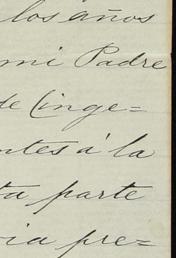 los años
mi Padre
de Cinge=
ntes á la
ta parte
ia pre=